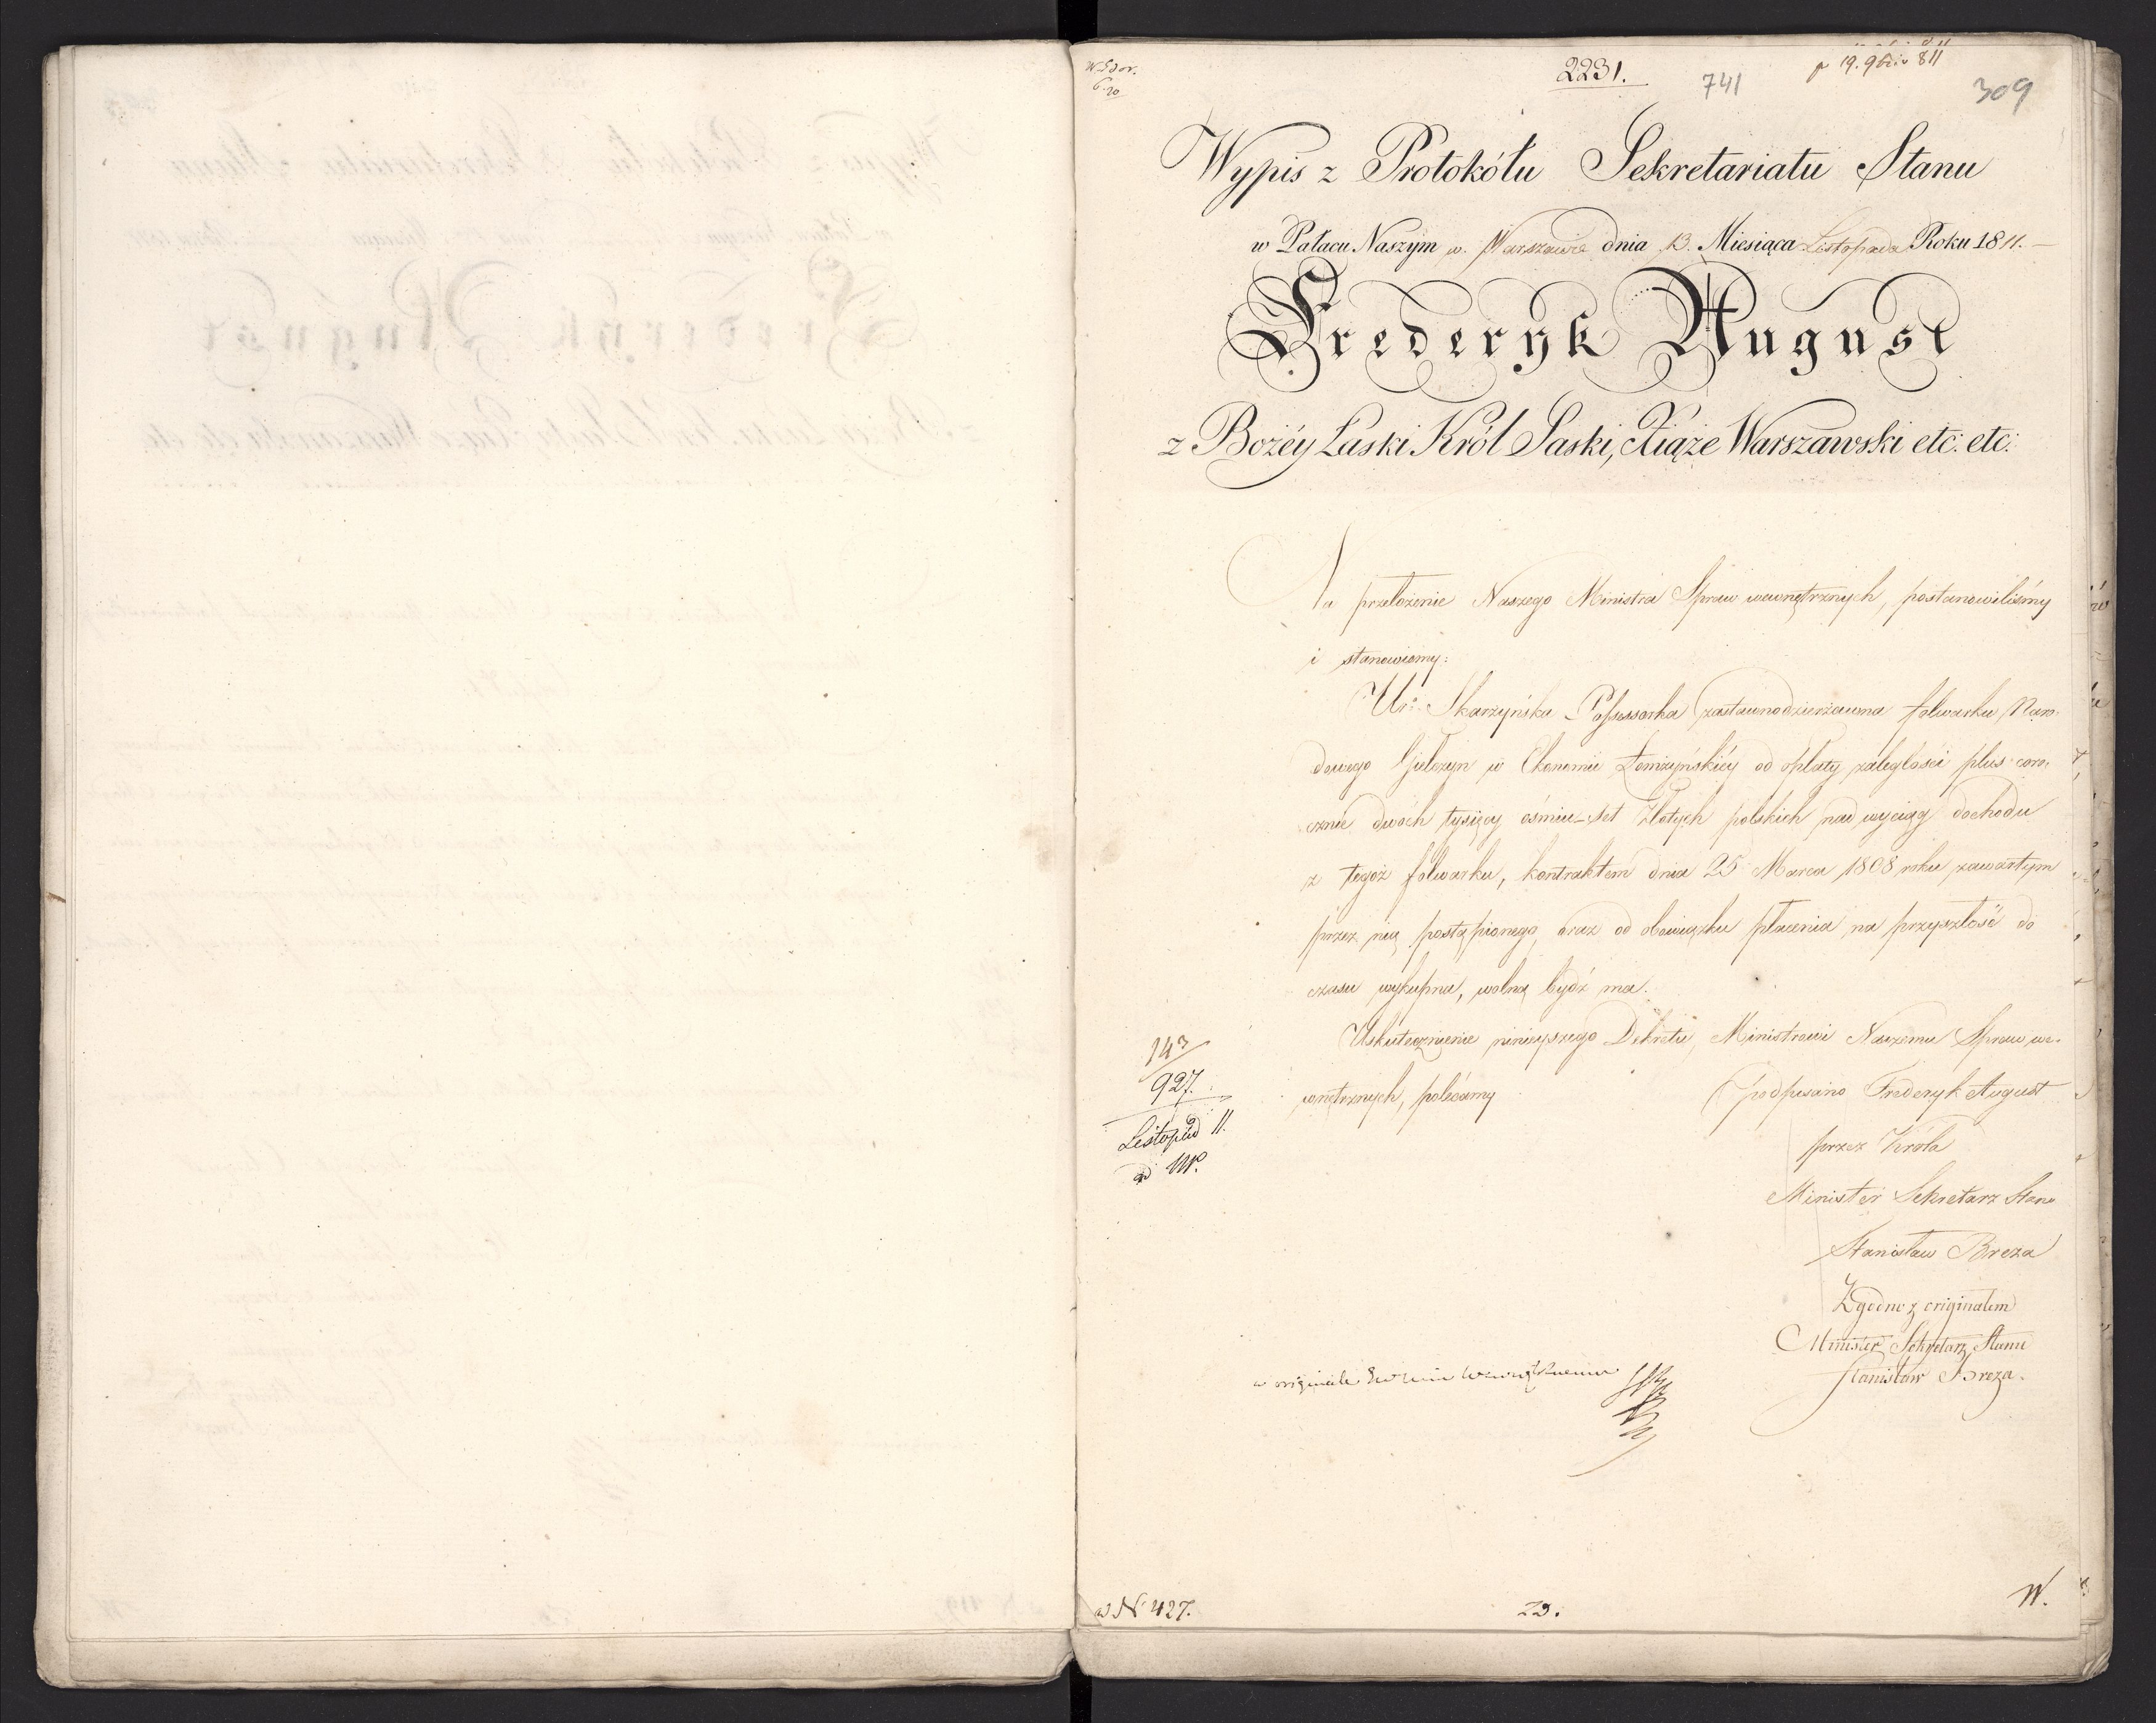 2231.
741
p 19. 9bris 811
309
Wypis z Protokółu Sekretariatu Stanu
w Pałacu Naszym w. Warszawie dnia 13. Miesiąca Listopada Roku 1811.
Frederyk August
z Bożéy Laski Król Saski, Xiąże Warszawski etc: etc:
Na przełożenie Naszego Ministra Spraw wewnętrznych, postanowiliśmy
i stanowiemy:
Ur: Skarzyńska Possessorka zastawnodzierżawna folwarku Naro-
dowego Giełczyn w Ekonomii Łomżyńskiéy od opłaty zaległości plus coro,
cznie dwóch tysięcy ośmiu-set Złotych polskich nad wyciąg dochodu
z tegoż folwarku, kontraktem dnia 25 Marca 1808 roku zawartym
przez nią postąpionego, oraz od obowiązku płacenia na przyszłość do
czasu wykupna, wolną bydź ma.
Uskutecznienie ninieyszego Dekretu, Ministrowi Naszemu Spraw we-
wnętrznych, polecamy
(podpisano Frederyk August
przez Króla
Minister Sekretarz Stanu
Stanisław Breza
143
927.
Listopad 11.
Zgodno z originałem
Minister Sekretarz Stanu
Stanisław Breza.
w originale
N 427.
23.
W.